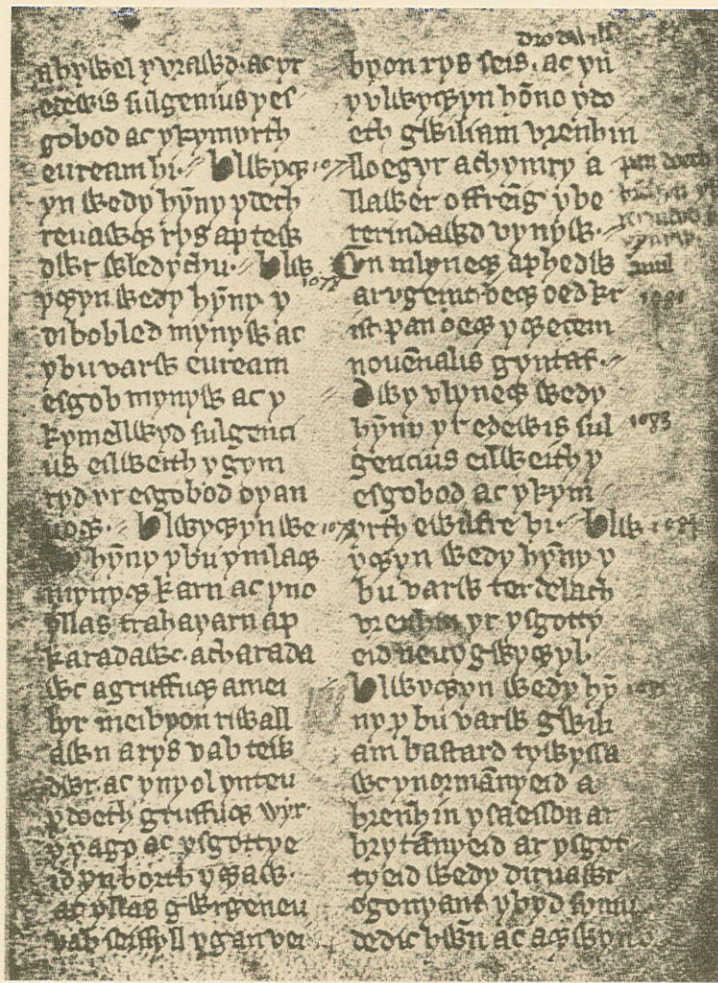 ahywel y vraỽd. ac yr
edewis sulgenius y es
gobod ac y kymyrth
euream hi. Blỽyđ 1077
yn ỽedy hȳny y dech
reuaỽđ rys ap teỽ
dỽr ỽledychu. Blỽ 1078
yđyn ỽedy hȳny y
dibobled mynyỽ ac
y bu varỽ euream
esgob mynyỽ ac y
kymellỽyd sulgenci
us eilỽeith y gym
ryd yr esgobod oy an
uođ. Blỽyđyn ỽe 1079
dy hȳny y bu ymlađ
mynyđ karn ac yno
y llas trahayarn ap
karadaỽc. acharada
ỽc agruffuđ amei
lyr meibyon riỽall
aỽn arys vab teỽ
dỽr. ac yny ol ynteu
y doeth gruffuđ ỽyr
y yago ac ysgottye
id yn borth yđaỽ.
ac y llas gỽrgeneu
vab seissyll y gan vei
byon rys seis. ac yn
y vlỽyđyn hōno y do
eth gỽiliam vrenhin
lloegyr achymry a
llaỽer offreīg y be
rerindaỽd vynyỽ.
Un mlyneđ aphedỽ
ar vgeint đeđ oed kr
ist pan oeđ y đecem
nouēnalis gyntaf.
Dỽy vlyneđ ỽedy
hȳny yr edewis sul 1083
gencius eilỽeith y
esgobod ac y kym
yrth ewilfre hi. Blỽ
yđyn ỽedy hȳny y
bu varỽ terdelach
vrenhin yr ysgotty
eid neu o gỽyđyl.
Blỽyđyn ỽedy hȳ
ny y bu varỽ gỽili
am bastard tyỽyssa
ỽc y normānyeid a
brenhin y saesson ar
brytānyeid ar ysgot
tyeid ỽedy diruaỽr
ogonyant y byd symu
dedic hỽn ac